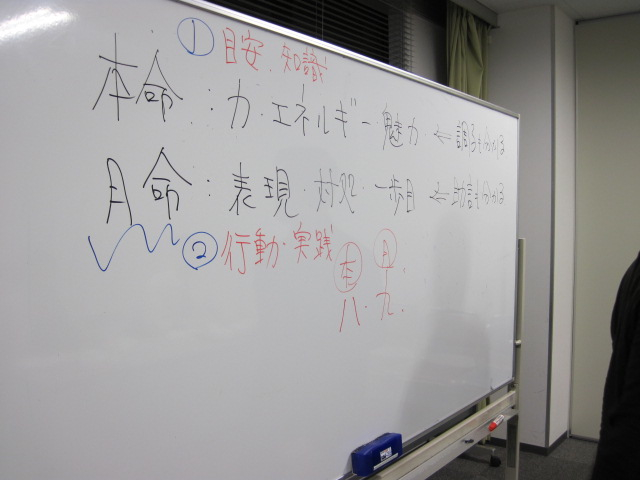 ① 目安・知識
本命：力・エネルギー 魅力 ⇐ 調子も分かる
月命：表現・対処・一歩目 ⇐ 助言も分かる
② 行動・実践
本 月
八・九